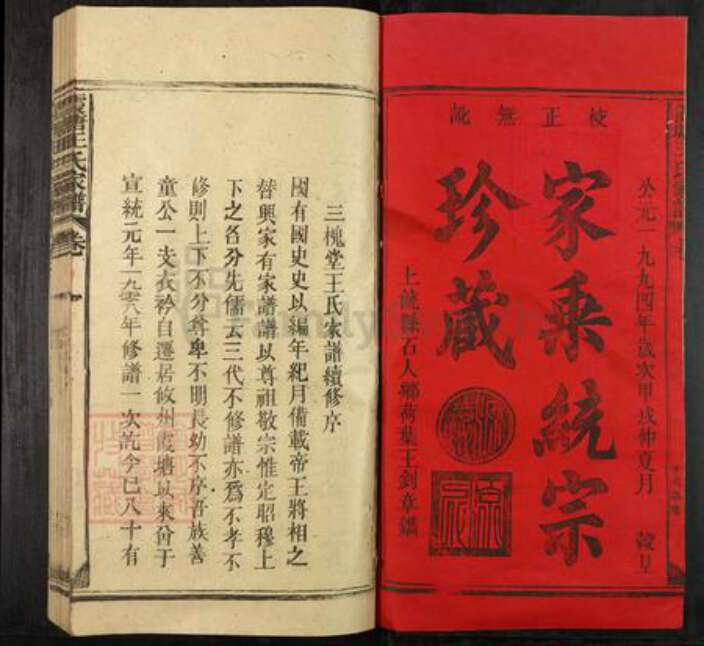 校正無訛
公元一九九四年歲次甲戌仲夏月 竣呈
家乘統宗
珍藏
上饒縣石人鄉荷葉王剑章鐫
三槐堂王氏家譜續修序
國有國史史以編年紀月備載帝王將相之
替興家有家譜譜以尊祖敬宗惟定昭穆上
下之各分先儒云三代不修譜亦為不孝不
修則上下不分尊卑不明長幼不序吾族善
童公一支衣衿自遷居攸州霞塘以來曾于
宣統元年一九零八年修譜一次訖今已八十有
霞塘王氏家譜 卷